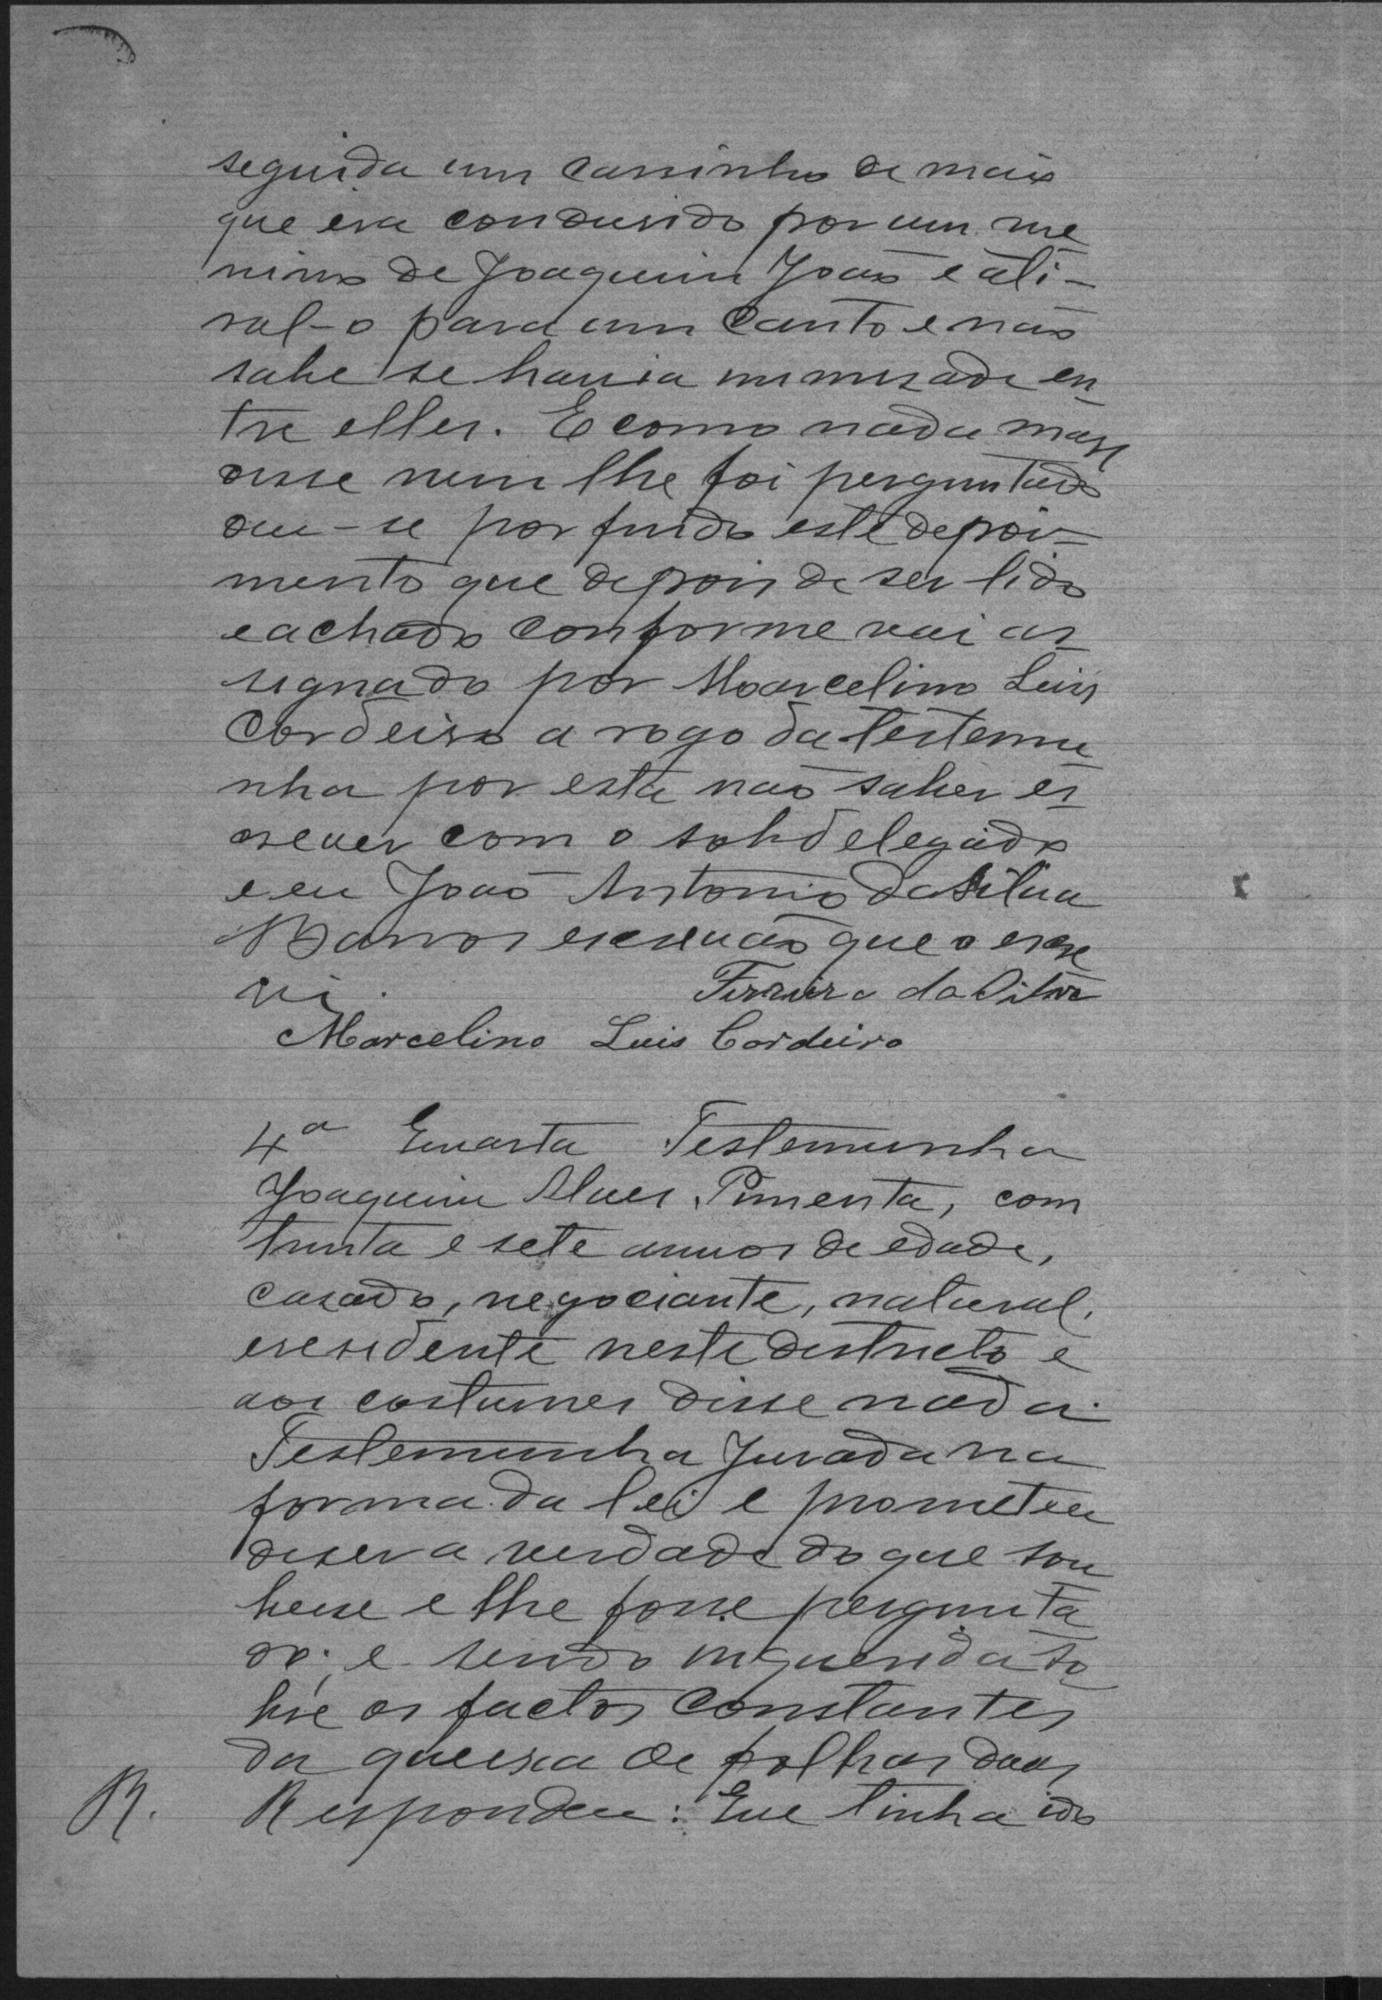 seguida um carrinho de mais
que era condusido por um me
nino de Joaquim João e ati-
ral-o para um canto e não
sabe se havia inimisade en
tre elles. E como nada mais
disse nem lhe foi perguntado
deu-se por findo este depoi-
mento que depois de ser lido
e achado conforme vai as
signado por Marcelino Luis
Cordeiro a rogo da testemu
nha por esta não saber es
crever com o subdelegado
e eu João Antonio da Silva
Barros escrivão que o escre
vi. Ferreira da Silva
Marcelino Luis Cordeiro
4a Quarta Testemunha
Joaquim Alves Pimenta, com
trinta e sete annos de edade,
casado, negociante, natural,
e residente neste destricto e
aos costumes disse nada.
Testemunha jurada na
forma da lei e prometeu
diser a verdade do que sou
besse e lhe fosse pergunta
do; e sendo inquerida so
bre os factos constantes
da queixa de folhas duas
R. Respondeu: Que tinha ido